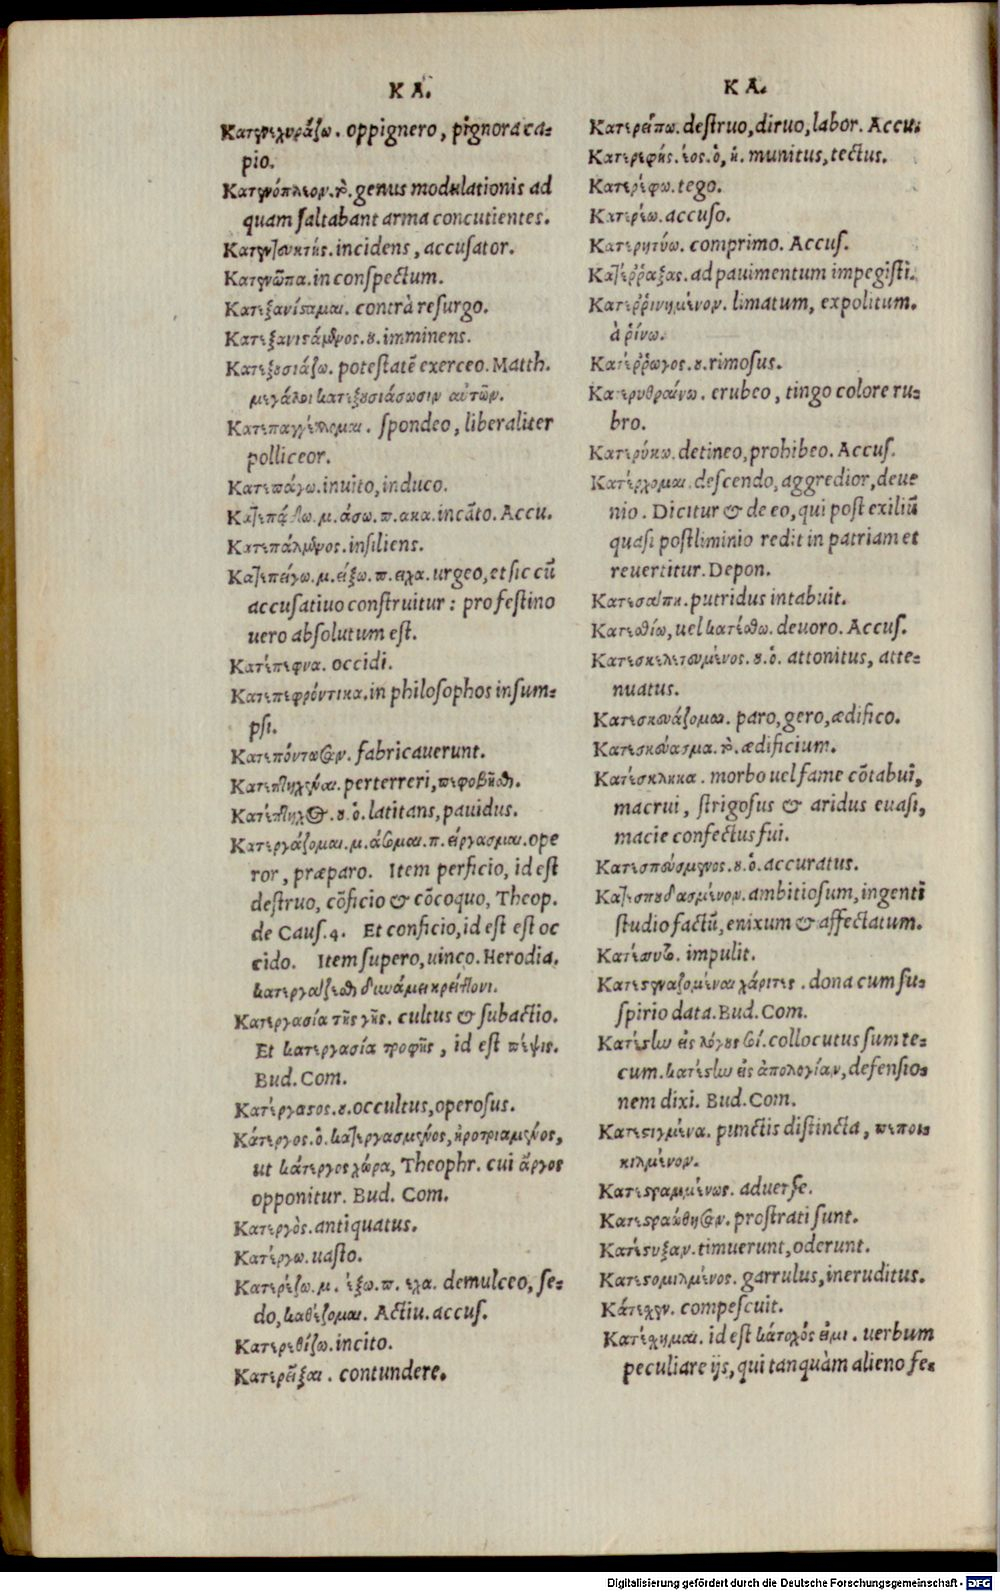 ΚΑ.
Κατενεχυράζω. oppignero, pignora ca=
pio.
Κατενόπλιον. τὸ. genus modulationis ad
quam saltabant arma concutientes.
incidens, accusator.
Κατενῶπα. in conspectum.
Κατεξανίσταμαι. contrà resurgo.
Κατεξανιστάμενος. ου. imminens.
Κατεξουσιάζω. potestatē exerceo. Matth.
μεγάλοι κατεξουσιάζωσιν αὐτῶν.
Κατεπαγγέλλομαι. spondeo, liberaliter
polliceor.
Κατεπάγω. inuito, induco.
Κατεπᾴδω. μ. άσω. π. ακα. incāto. Accu.
Κατεπάλμενος. insiliens.
Κατεπείγω. μ. είξω. π. ειχα. urgeo, et sic cū
accusatiuo construitur : pro festino
uero absolutum est.
Κατέπεφνα. occidi.
Κατεπεφρόντικα. in philosophos insum=
psi.
Κατεπόντωσαν. fabricauerunt.
Κατεπτηχέναι. perterreri, πεφοβῆσθαι.
Κατέπτηχος. ου. ὁ. latitans, pauidus.
Κατεργάζομαι. μ. άσομαι. π. είργασμαι. ope
ror, præparo. Item perficio, id est
destruo, cōficio & cōcoquo, Theop.
de Caus. 4. Et conficio, id est est oc
cido. Item supero, uinco. Herodia.
κατεργάζεσθαι δυνάμει κρείττονι.
Κατεργασία τῆς γῆς. cultus & subactio.
Et κατεργασία τροφῆς, id est πέψις.
Bud. Com.
Κατέργαστος. ου. occultus, operosus.
Κάτεργος. ὁ. κατεργασμένος, ἠροτριαμένος,
ut κάτεργος χώρα, Theophr. cui ἄργος
opponitur. Bud. Com.
Κατεργὸς. antiquatus.
Κατέργω. uasto.
Κατερέζω. μ. έξω. π. εχα. demulceo, se=
do, καθέζομαι. Actiu. accus.
Κατερεθίζω. incito.
Κατερεῖξαι. contundere.
ΚΑ.
Κατερείπω. destruo, diruo, labor. Accu.
Κατερεφής. έος. ὁ, ἡ. munitus, tectus.
Κατερέφω. tego.
Κατερέω. accuso.
Κατερητύω. comprimo. Accus.
Κατέῤῥαξας. ad pauimentum impegisti.
Κατεῤῥινημένον. limatum, expolitum.
à ῥίνω.
Κατέῤῥωγος. ου. rimosus.
Κατερυθραίνω. erubeo, tingo colore ru=
bro.
Κατερύκω. detineo, prohibeo. Accus.
Κατέρχομαι. descendo, aggredior, deue
nio. Dicitur & de eo, qui post exiliū
quasi postliminio redit in patriam et
reuertitur. Depon.
Κατεσάπη. putridus intabuit.
Κατεσθίω, uel κατέσθω. deuoro. Accus.
Κατεσκελετευμένος. ου. ὁ. attonitus, atte=
nuatus.
Κατεσκευάζομαι. paro, gero, ædifico.
Κατεσκεύασμα. τὸ. ædificium.
Κατέσκληκα. morbo uel fame cōtabui,
macrui, strigosus & aridus euasi,
macie confectus fui.
Κατεσπευσμένος. ου. ὁ. accuratus.
Κατεσπουδασμένον. ambitiosum, ingenti
studio factū, enixum & affectatum.
impulit.
Κατεστεναζομέναι χάριτες. dona cum su=
spirio data. Bud. Com.
Κατέστην εἰς λόγους σοί. collocutus sum te=
cum. κατέστην εἰς ἀπολογίαν, defensio=
nem dixi. Bud. Com.
Κατεστιγμένα. punctis distincta, πεποι=
κιλμένον.
Κατεστραμμένως. aduerse.
Κατεστρώθησαν. prostrati sunt.
Κατέστυξαν. timuerunt, oderunt.
Κατεστομιλμένος. garrulus, ineruditus.
Κάτεχεν. compescuit.
Κατέχημαι. id est κάτοχός εἰμι. uerbum
peculiare ijs, qui tanquàm alieno fe=
Digitalisierung gefördert durch die Deutsche Forschungsgemeinschaft - DFG